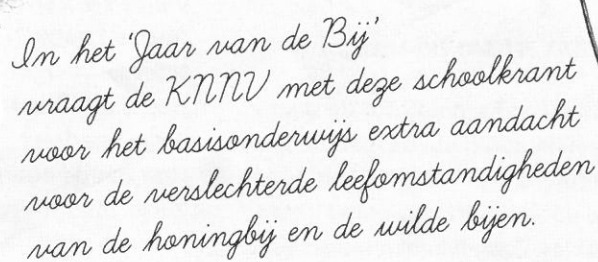 In het 'Jaar van de Bij'
vraagt de KNNV met deze schoolkrant
voor het basisonderwijs extra aandacht
voor de verslechterde leefomstandigheden
van de honingbij en de wilde bijen.